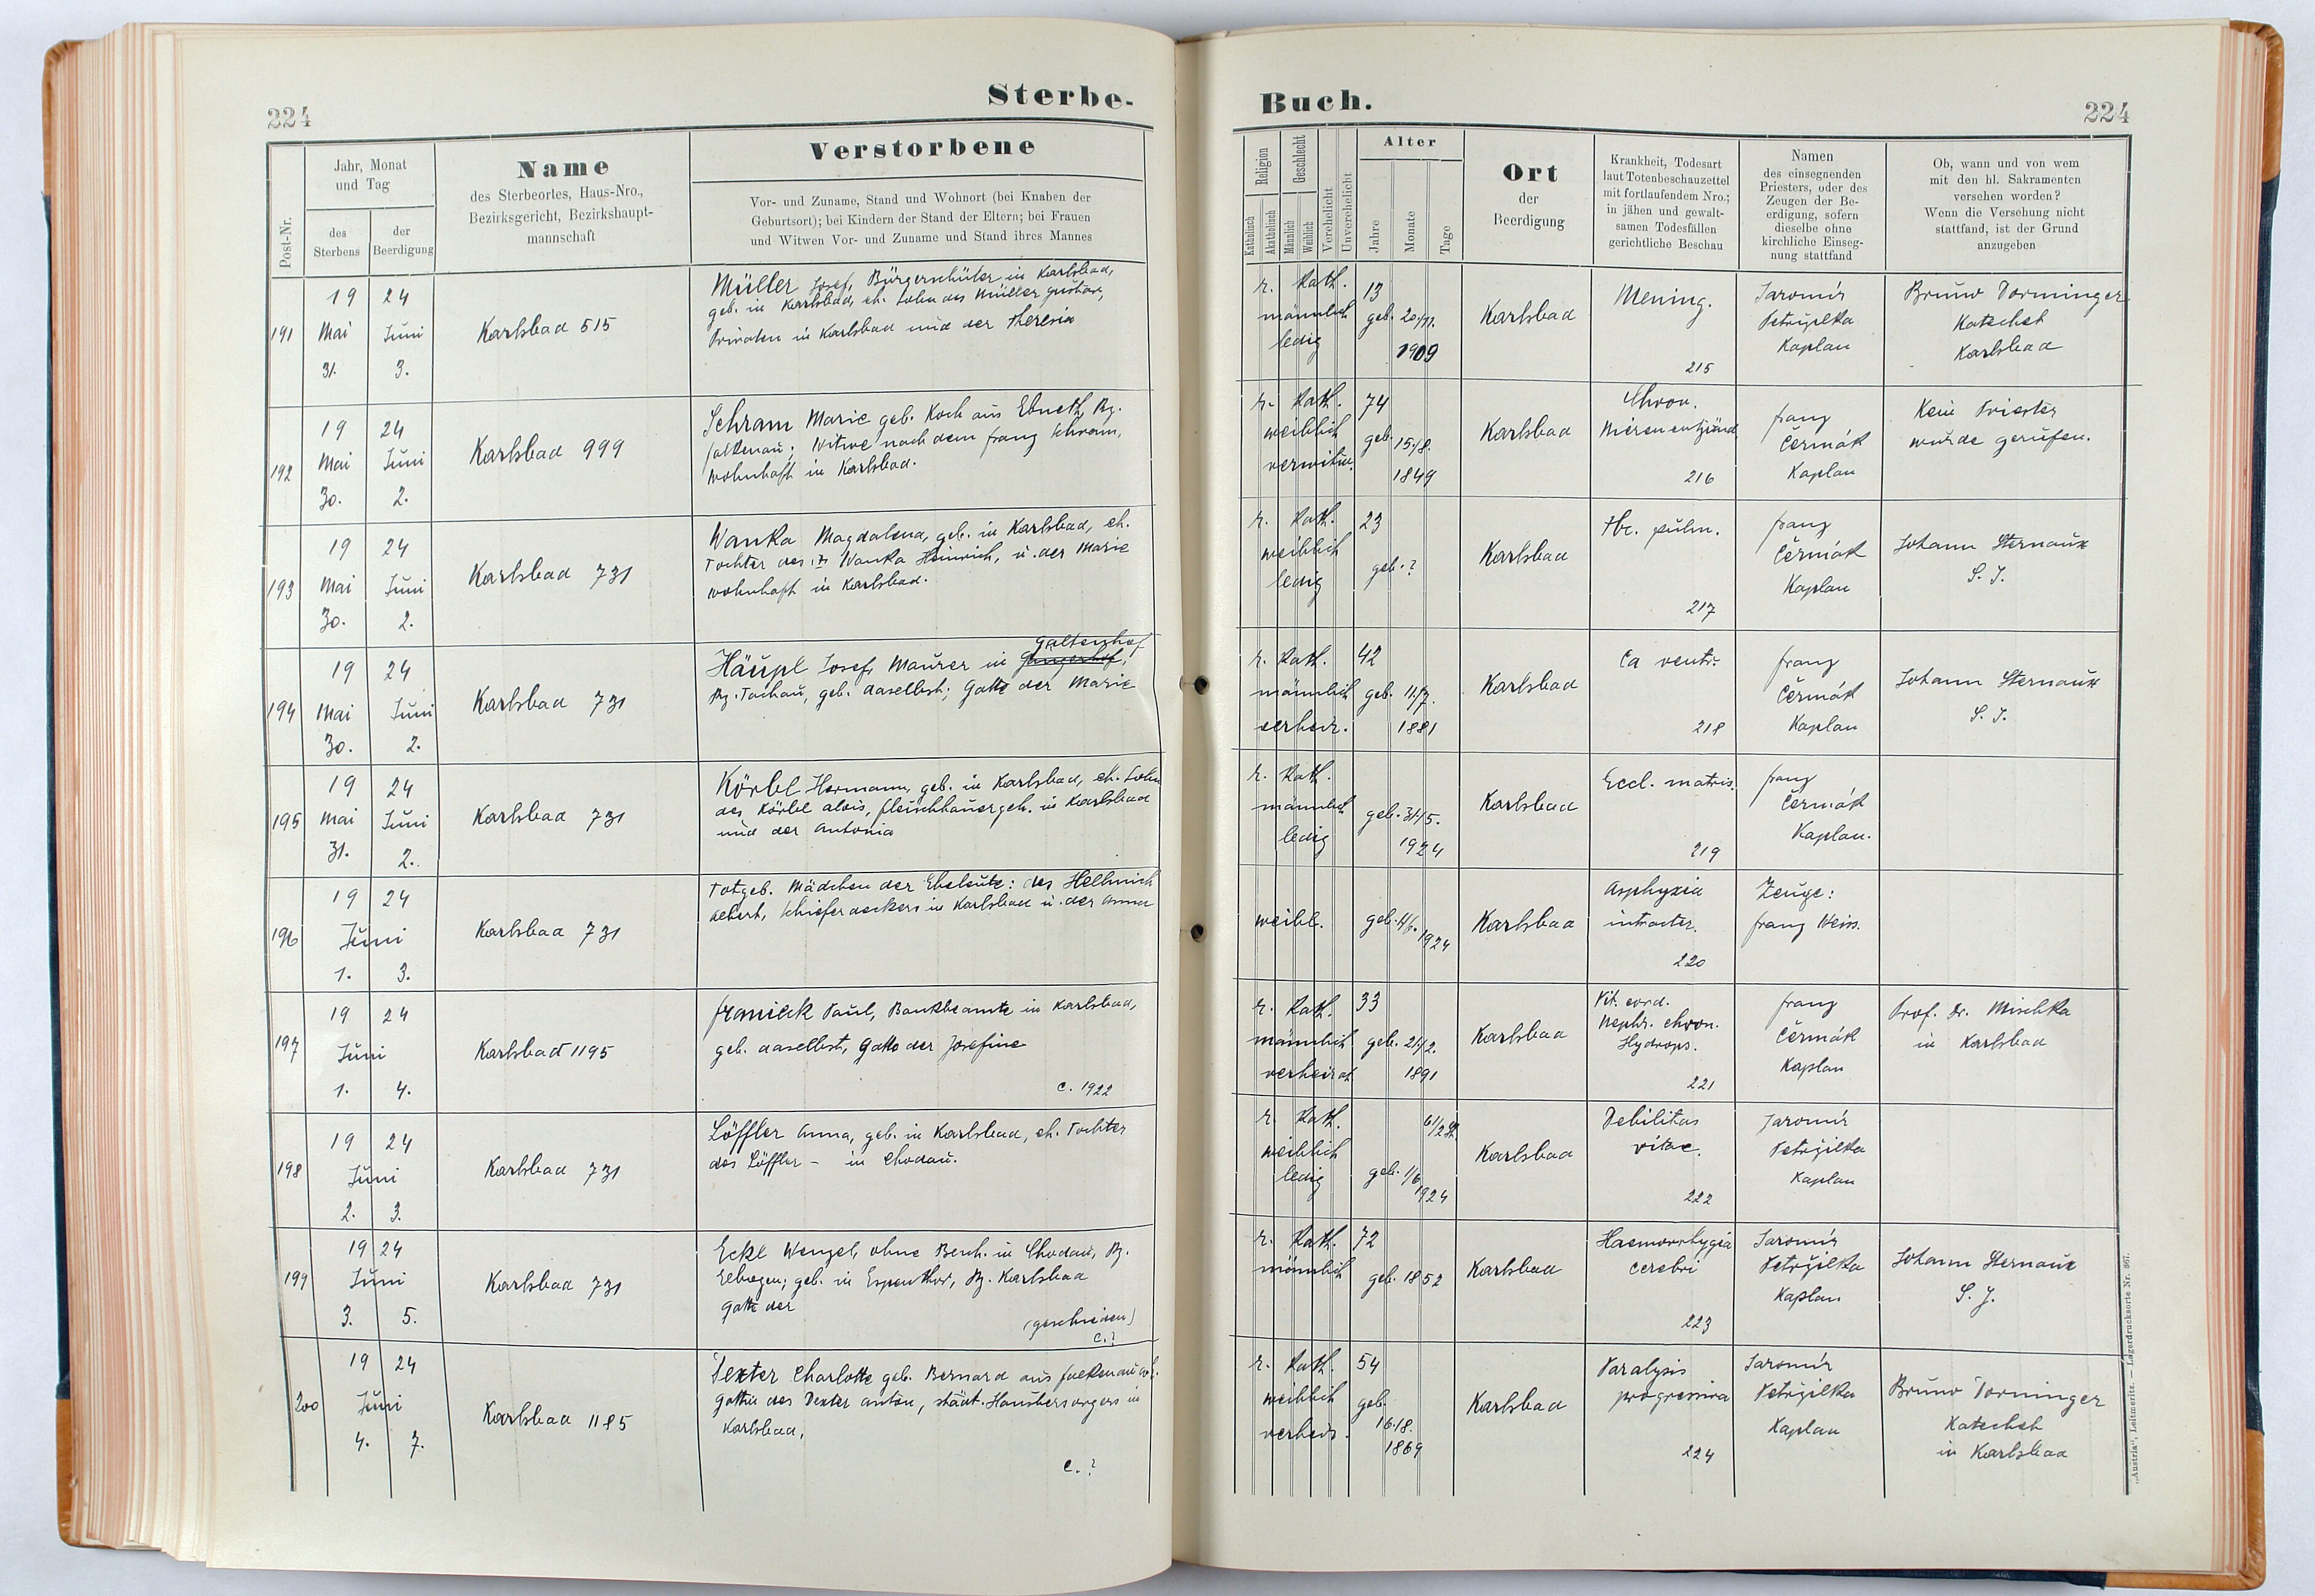 224
Sterbe-
Post-Nr.
Jahr, Monat
und Tag
des
Sterbens
der
Beerdigung
Name
des Sterbeortes, Haus-Nro.,
Bezirksgericht, Bezirkshaupt-
mannschaft
Verstorbene
Vor- und Zuname, Stand und Wohnort (bei Knaben der
Geburtsort); bei Kindern der Stand der Eltern; bei Frauen
und Witwen Vor- und Zuname und Stand ihres Mannes
191
19 24
Mai Juni
31. 3.
Karlsbad 515
Müller Josef, Bürgerschüler in Karlsbad,
geb. in Karlsbad, eh. Sohn des Müller Gustav,
Privaten in Karlsbad und der Theresia
192
19 24
Mai Juni
30. 2.
Karlsbad 999
Schram Marie geb. Koch aus Ebmeth, Bz.
Falkenau; Witwe nach dem Franz Schram,
wohnhaft in Karlsbad.
193
19 24
Mai Juni
30. 2.
Karlsbad 731
Wanka Magdalena, geb. in Karlsbad, eh.
Tochter des Wanka Heinrich, u. der Marie
wohnhaft in Karlsbad.
194
19 24
Mai Juni
30. 2.
Karlsbad 731
Galtenhof
Häupl Josef, Maurer in
Bz. Tachau, geb. daselbst; Gatte der Marie
195
19 24
Mai Juni
31. 2.
Karlsbad 731
Körbl Hermann, geb. in Karlsbad, eh. Sohn
des Körbl Alois, Fleischhauergeh. in Karlsbad
und der Antonia
196
19 24
Juni
1. 3.
Karlsbad 731
Totgeb. Mädchen der Eheleute: des Hellmich
Albert, Schieferdeckers in Karlsbad u. der Anna
197
19 24
Juni
1. 4.
Karlsbad 1195
Franieck Paul, Bankbeamte in Karlsbad,
geb. daselbst, Gatte der Josefine
c. 1922
198
19 24
Juni
2. 3.
Karlsbad 731
Löffler Anna, geb. in Karlsbad, eh. Tochter
des Löffler – in Chodau.
199
19 24
Juni
3. 5.
Karlsbad 731
Eckl Wenzel, ohne Beruf in Chodau, Bz.
Elbogen; geb. in Espenthor, Bz. Karlsbad
Gatte der
(geschieden)
c.?
200
19 24
Juni
4. 7.
Karlsbad 1185
Dexter Charlotte geb. Bernard aus Falkenau
Gattin des Dexter Anton, städt. Hausbesorgers in
Karlsbad,
c.?
Buch.
224
Religion
Katholisch
Akatholisch
Geschlecht
Männlich
Weiblich
Verehelicht
Unverehelicht
Alter
Jahre
Monate
Tage
Ort
der
Beerdigung
Krankheit, Todesart
laut Totenbeschauzettel
mit fortlaufendem Nro.;
in jähen und gewalt-
samen Todesfällen
gerichtliche Beschau
Namen
des einsegnenden
Priesters, oder des
Zeugen der Be-
erdigung, sofern
dieselbe ohne
kirchliche Einseg-
nung stattfand
Ob, wann und von wem
mit den hl. Sakramenten
versehen worden?
Wenn die Versehung nicht
stattfand, ist der Grund
anzugeben
r. Kath.
männlich
ledig
13
geb. 20/11.
1909
Karlsbad
Mening.
215
Jaromír
Petržilka
Kaplan
Bruno Dorminger
Katechet
Karlsbad
r. Kath.
weiblich
verwitw.
74
geb. 15/8.
1849
Karlsbad
Chron.
Nierenentzünd.
216
Franz
Čermák
Kaplan
Kein Priester
wurde gerufen.
r. Kath.
weiblich
ledig
23
geb. ?
Karlsbad
tbc. pulm.
217
Franz
Čermák
Kaplan
Johann Sternaux
S. J.
r. Kath.
männlich
verheir.
42
geb. 11/7.
1881
Karlsbad
Ca ventr.
218
Franz
Čermák
Kaplan
Johann Sternaux
S. J.
r. Kath.
männlich
ledig
geb. 31/5.
1924
Karlsbad
Eccl. matris.
219
Franz
Čermák
Kaplan.
weibl.
geb. 1/6. 1924
Karlsbad
Asphyxia
intrauter.
220
Zeuge:
Franz Weiss.
r. Kath.
männlich
verheirat.
33
geb. 21/2.
1891
Karlsbad
Vit. cord.
Nephr. chron.
Hydrops.
221
Franz
Čermák
Kaplan
Prof. Dr. Mischka
in Karlsbad
r. Kath.
weiblich
ledig
6 1/2 St.
geb. 1/6
1924
Karlsbad
Debilitas
vitae.
222
Jaromír
Petržilka
Kaplan
r. Kath.
männlich
72
geb. 1852
Karlsbad
Haemorrhagia
cerebri
223
Jaromír
Petržilka
Kaplan
Johann Sternaux
S. J.
r. Kath.
weiblich
verheir.
54
geb.
16/8.
1869
Karlsbad
Paralysis
progressiva
224
Jaromír
Petržilka
Kaplan
Bruno Dorminger
Katechet
in Karlsbad
„Austria“, Leitmeritz. — Lagerdrucksorte Nr. 367.